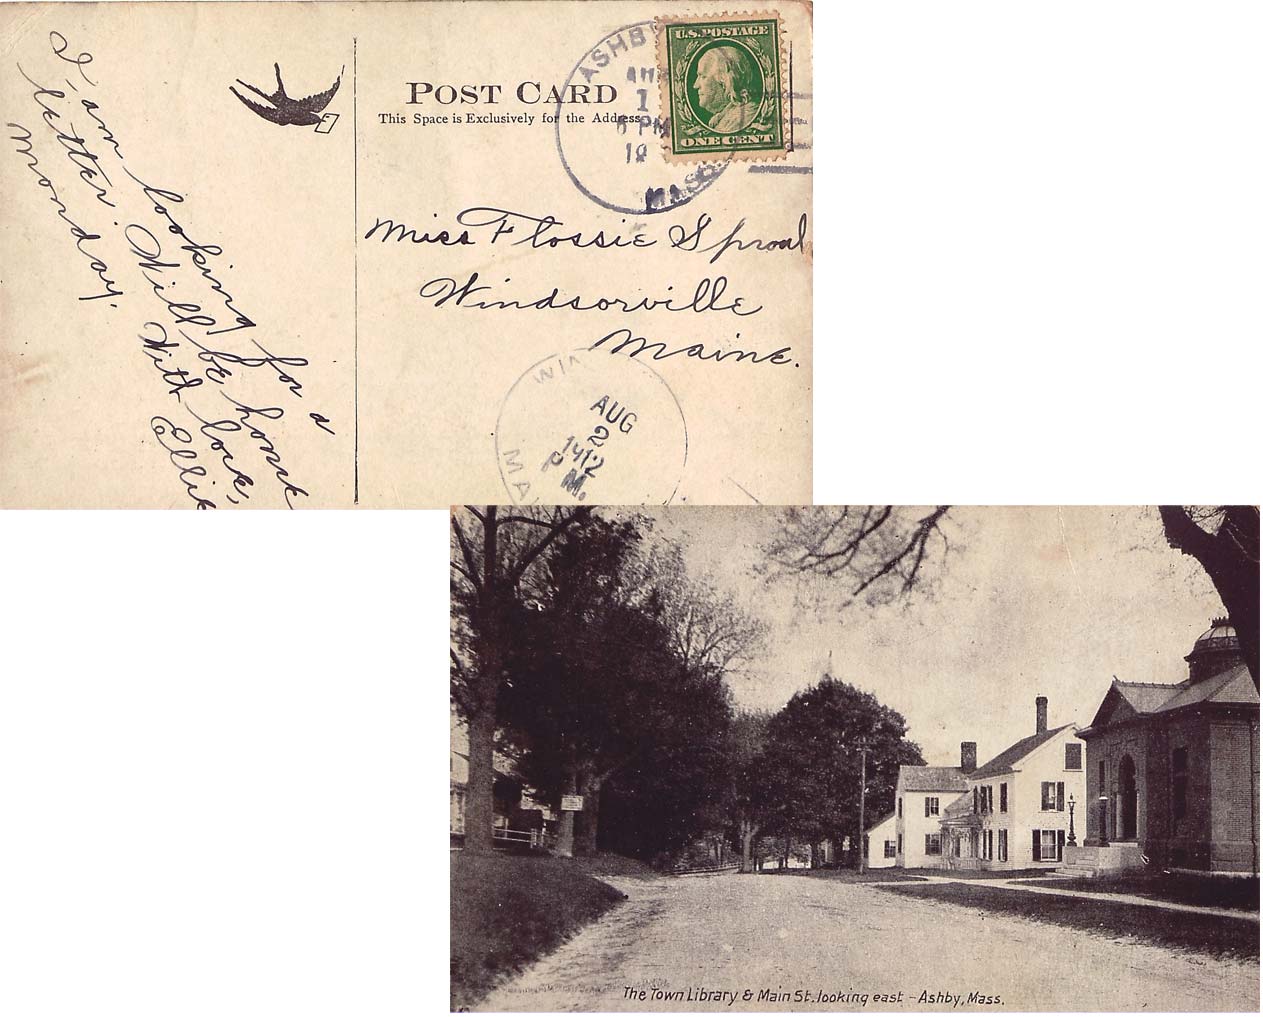 I am looking for a
letter. Will be home
Monday. With love,
Ellie
POST CARD
This Space is Exclusively for the Address
ASHBY
AUG
1
6 PM
19
MASS.
U.S. POSTAGE
ONE CENT
Miss Flossie Sproul
Windsorville
Maine.
WIN
AUG
2
1912
P M.
MA
The Town Library & Main St. looking east - Ashby, Mass.